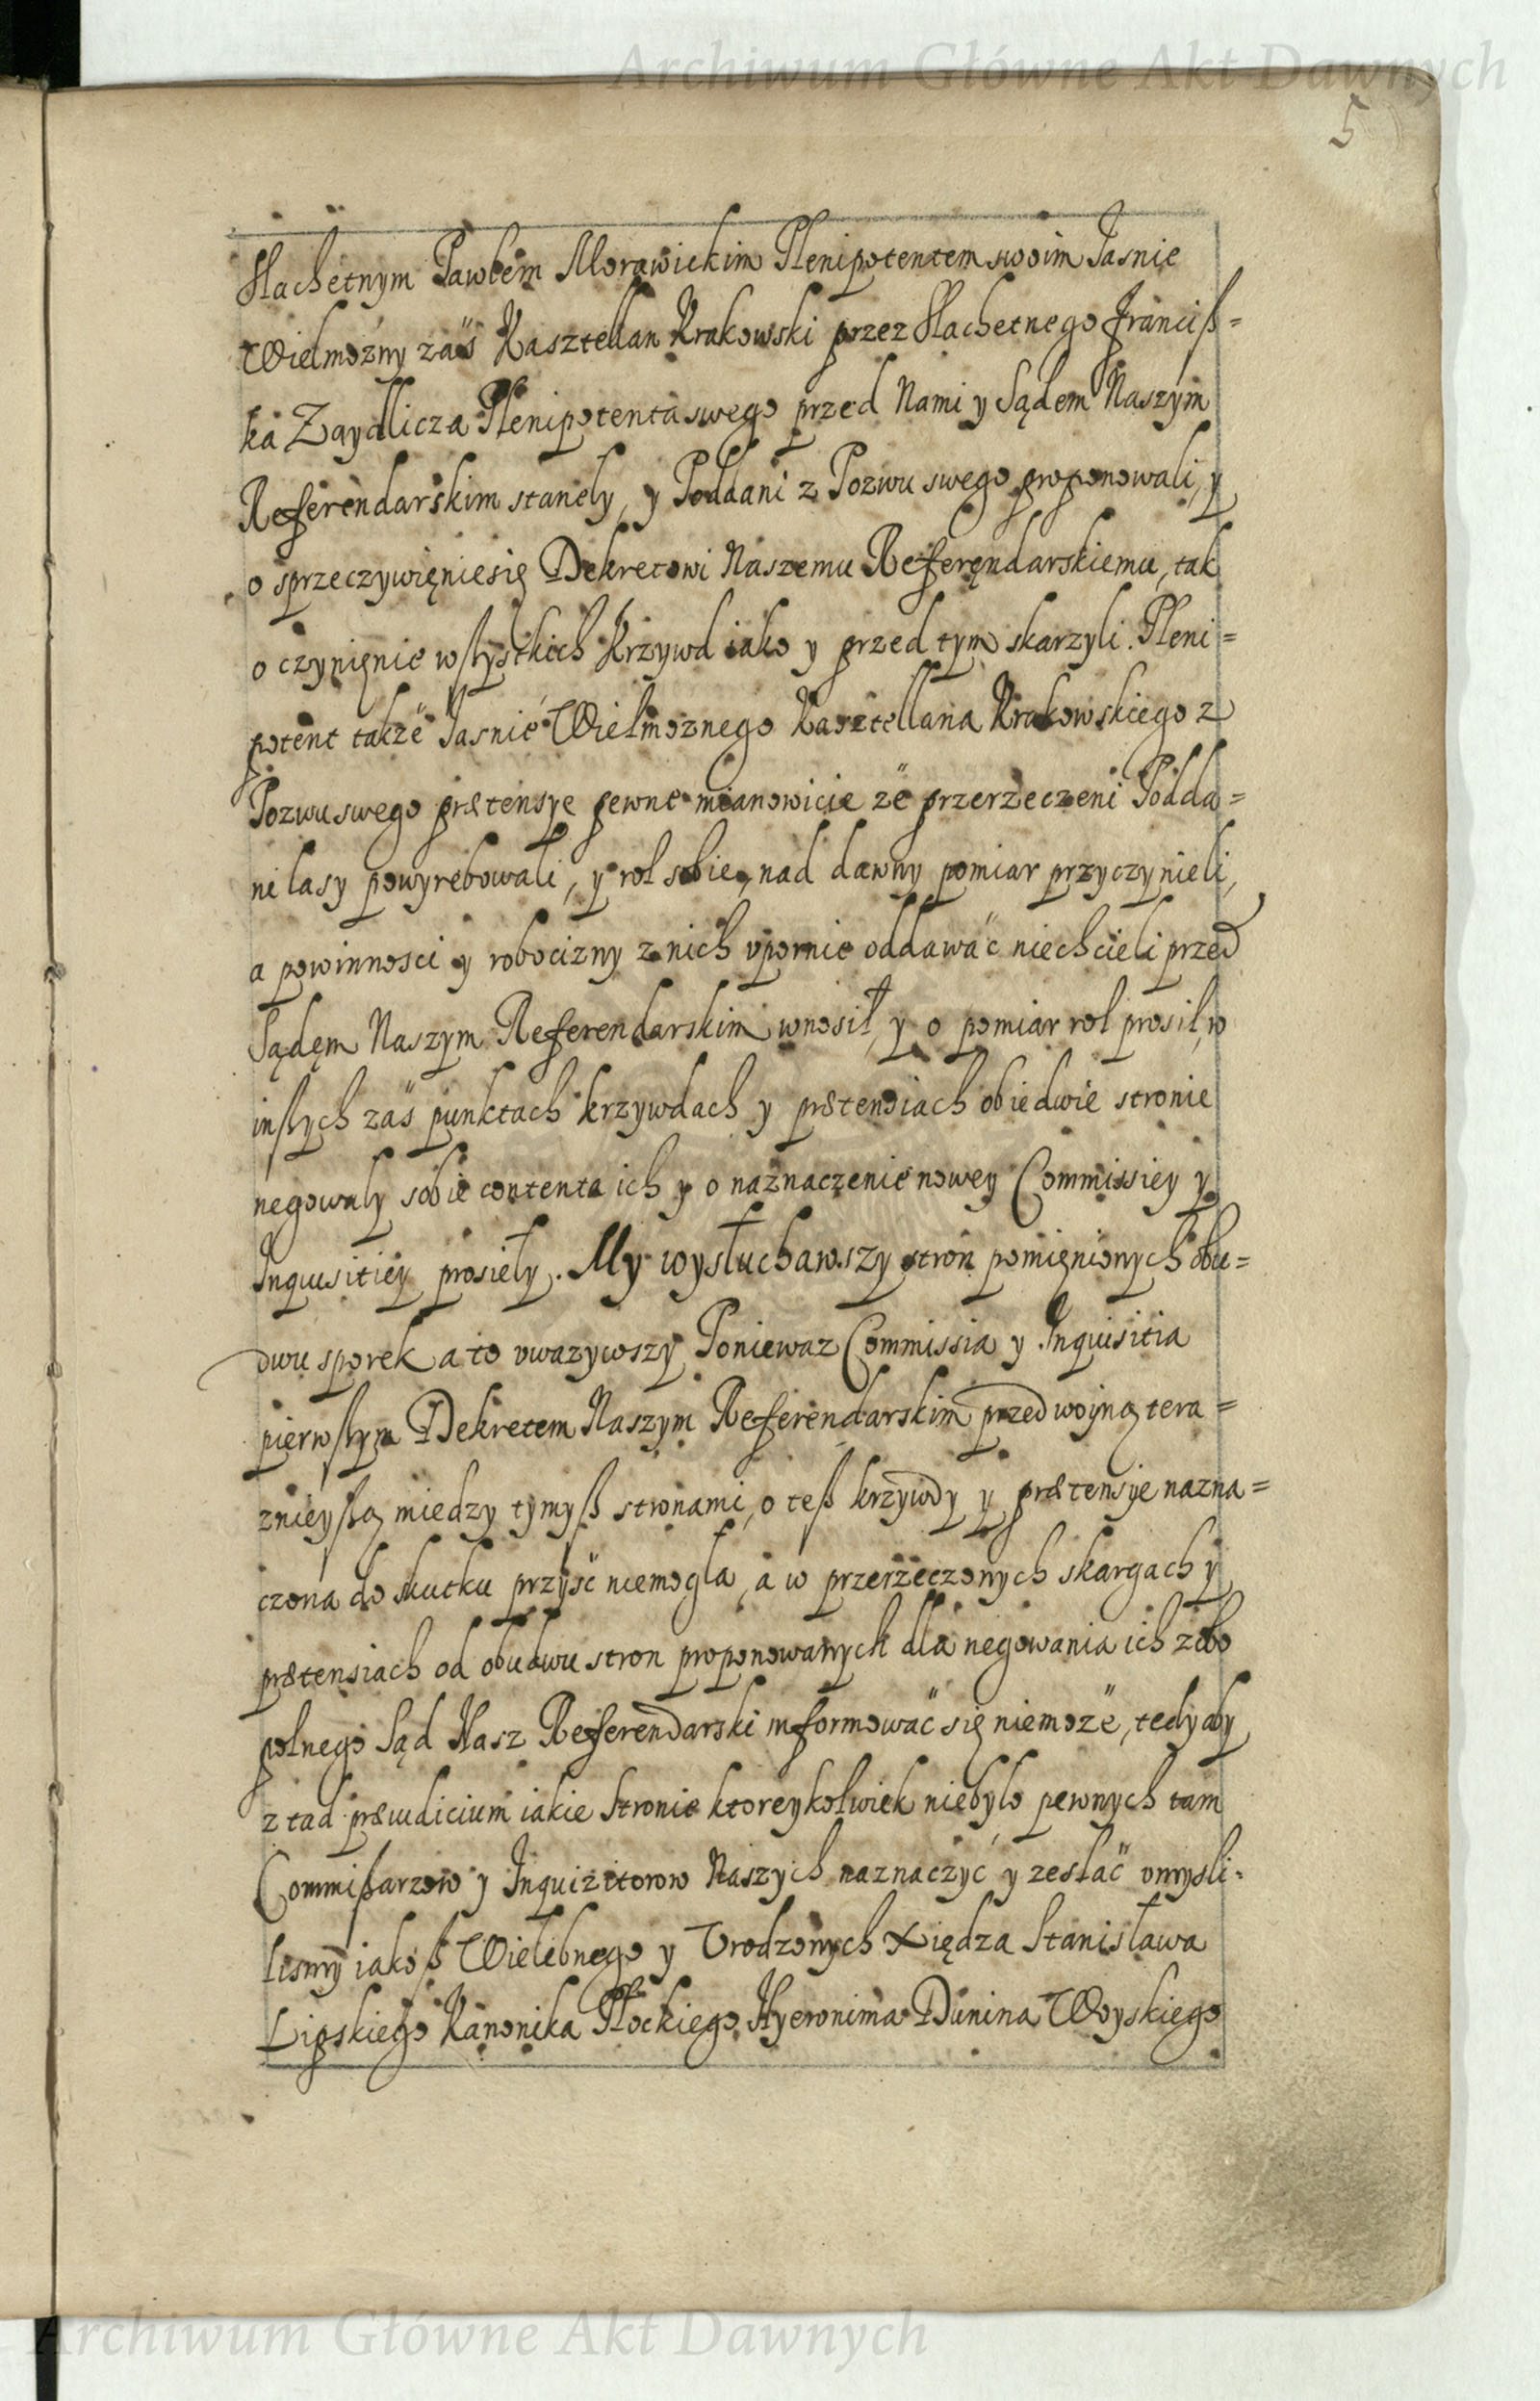 Archiwum Główne Akt Dawnych
5
Slachetnym Pawłem Morawickim Plenipotentem swoim Jasnie
Wielmozny zaś Kasztellan Krakowski przez Slachetnego Franciß=
ka Zaydlicza Plenipotenta swego przed Nami y Sądem Naszym
Referendarskim stanely, y Poddani z Pozwu swego proponowali, y
o sprzeczywięnie się Dekretowi Naszemu Referęndarskiemu, tak
o czynięnie wßystkich Krzywd iako y przed tym skarzyli. Pleni=
potent także Jasnie Wielmoznego Kasztellana Krakowskiego z
Pozwu swego prætensye pewne mianowicie że przerzeczeni Podda=
ni lasy powyrebowali, y rol sobie, nad dawny pomiar przyczynieli,
a powinnosci y robocizny z nich vpornie oddawać niechcieli przed
Sądęm Naszym Referendarskim wnosił, y o pomiar rol prosił, w
inßych zaś punktach krzywdach y prætensiach obiedwie stronie
negowały sobie contenta ich y o naznaczenie nowey Commissiey y
Inquisitiey prosieły. My wysłuchawszy stron pomięnionych obu=
dwu sporek a to vwazywszy Poniewaz Commissia y Inquisitia
pierwßym Dekretem Naszym Referendarskim przed woyną tera=
znieyßą miedzy tymyß stronami, o teß krzywdy y prætensye nazna=
czona do skutku przyść niemogła, a w przerzeczonych skargach y
prætensiach od obudwu stron proponowanych dla negowania ich zobo
polnego Sąd Nasz Referendarski informować się niemoże, tedy aby
z tad præiudicium iakie Stronie ktoreykolwiek niebyło pewnych tam
Commißarzow y Inquizitorow Naszych naznaczyć y zesłać vmysli=
lismy iakoß Wielebnego y Vrodzonych Xiędza Stanisława
Lipskiego Kanonika Płockiego, Hyeronima Dunina Woyskiego
Archiwum Główne Akt Dawnych